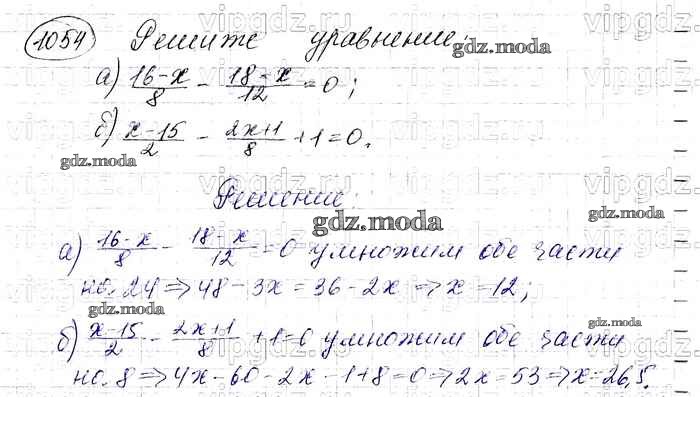 1054 Решите уравнение:
а) 16-x/8 - 18-x/12 = 0;
б) x-15/2 - 2x+1/8 + 1 = 0.
Решение:
а) 16-x/8 - 18-x/12 = 0 умножим обе части
на 24 ⇒ 48 - 3x = 36 - 2x ⇒ x = 12;
б) x-15/2 - 2x+1/8 + 1 = 0 умножим обе части
на 8 ⇒ 4x - 60 - 2x - 1 + 8 = 0 ⇒ 2x = 53 ⇒ x = 26,5.
gdz.moda
gdz.moda
gdz.moda
gdz.moda
gdz.moda
gdz.moda
gdz.moda
vipgdz.ru